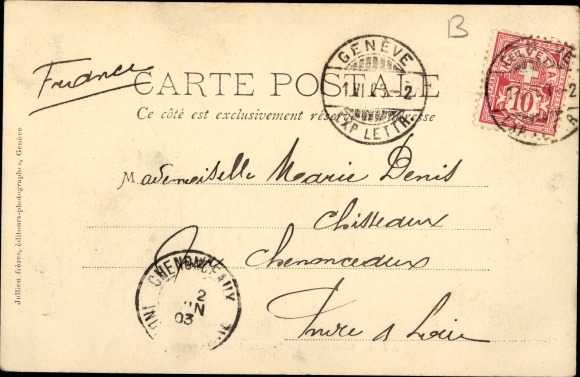 B
France
CARTE POSTALE
Ce côté est exclusivement réservé à l'adresse
GENÈVE
1.VI.03.-2
EXP. LETTR.
HELVETIA
10
Mademoiselle Marie Denis
Chisseaux
Chenonceaux
Indre & Loire
CHENONCEAUX
2
03
Jullien frères, éditeurs-photographes, Genève